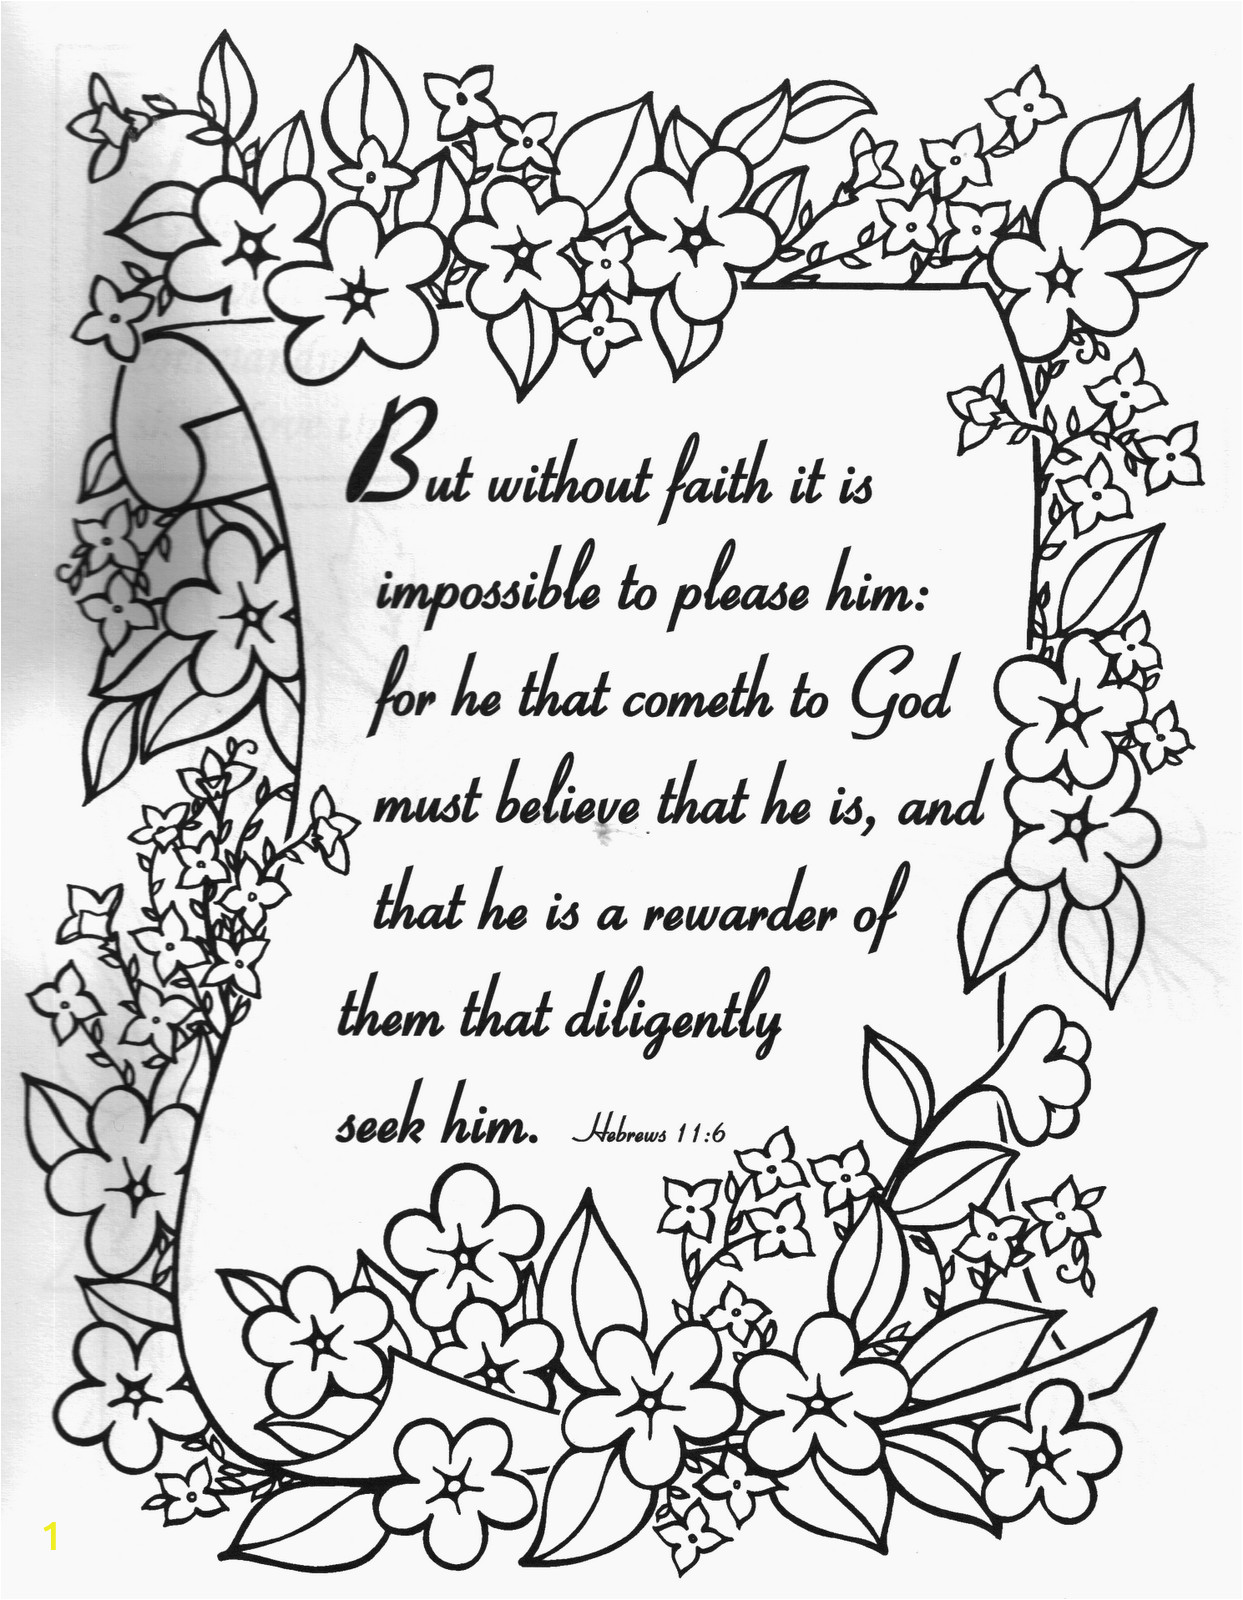 But without faith it is
impossible to please him:
for he that cometh to God
must believe that he is, and
that he is a rewarder of
them that diligently
seek him. Hebrews 11:6
1